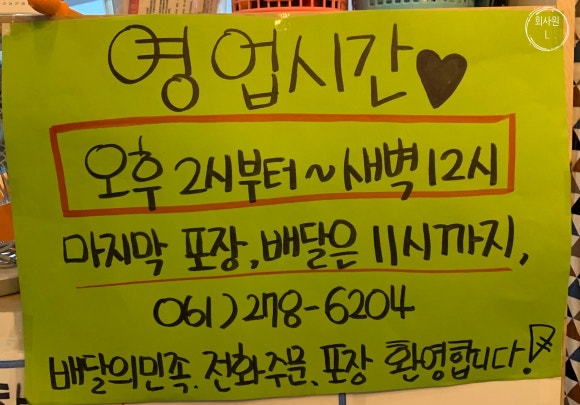 회사원
L
영업시간♥
오후 2시부터~새벽12시
마지막 포장,배달은 11시까지,
061)278-6204
배달의민족.전화주문.포장 환영합니다!